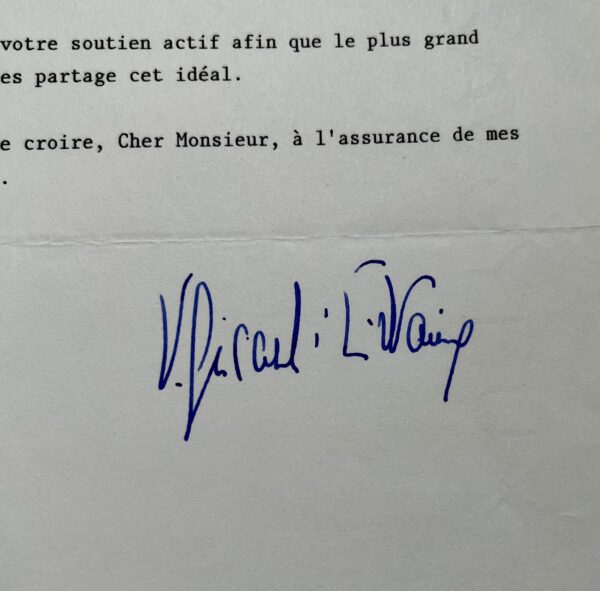 votre soutien actif afin que le plus grand
es partage cet idéal.
e croire, Cher Monsieur, à l'assurance de mes
.
V. Giscard d'Estaing